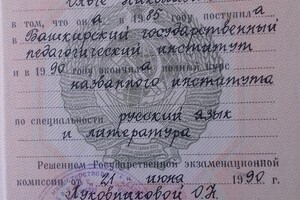 в том, что он а в 1985 году поступил а
в Башкирский государственный
педагогический институт
и в 1990 году окончил а полный курс
названного института
по специальности русский язык
и литература
Решением Государственной экзаменационной
комиссии от 21 июня 1990 г.